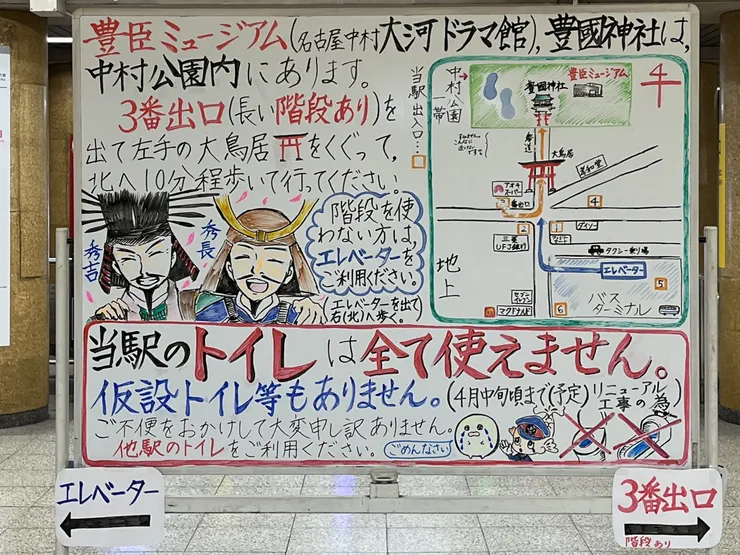 豊臣ミュージアム(名古屋中村大河ドラマ館),豊國神社は,
中村公園内にあります。
3番出口(長い階段あり)を
出て左手の大鳥居をくぐって,
北へ10分程歩いて行ってください。
秀吉
秀長
階段を使
わない方は,
エレベーターを
ご利用ください。
(エレベーターを出て
右(北)へ歩く。)
当駅出入口…
中村公園
豊臣ミュージアム
豊國神社
参道
大鳥居
3番出口
4
2
三菱
UFJ銀行
1
ダイソー
タクシー乗り場
エレベーター
5
地上
マクドナルド
6
バス
ターミナル
当駅のトイレは全て使えません。
仮設トイレ等もありません。(4月中旬頃まで(予定)リニューアル
工事の為)
ご不便をおかけして大変申し訳ありません。
他駅のトイレをご利用ください。
ごめんなさい
エレベーター
3番出口
階段あり